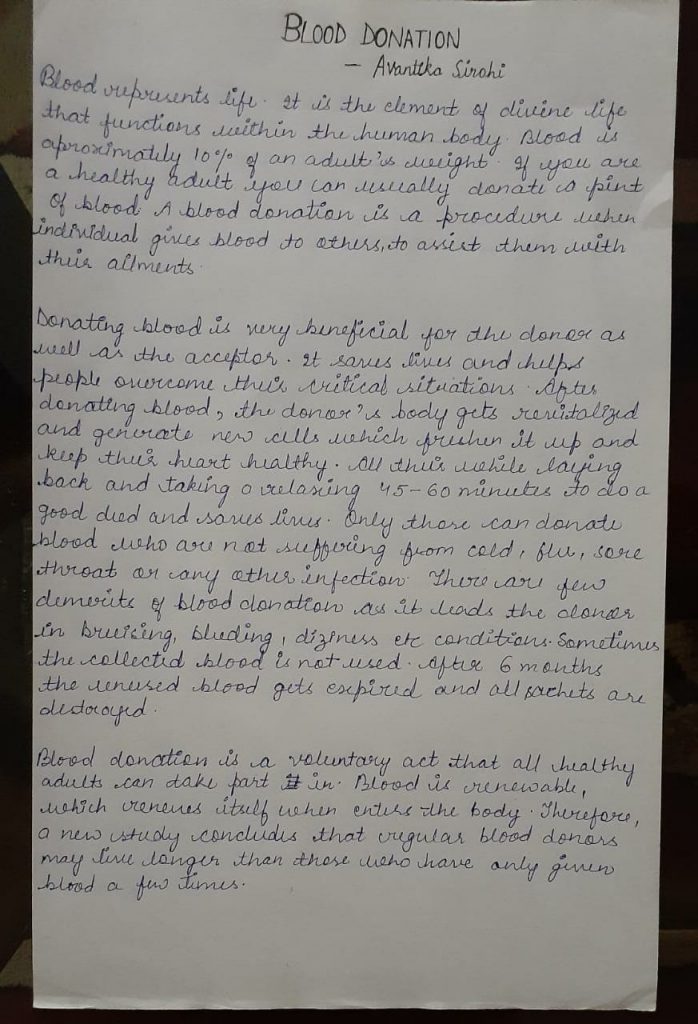 BLOOD DONATION
- Avantika Sirohi
Blood represents life. It is the element of divine life
that functions within the human body. Blood is
aproximately 10% of an adult's weight. If you are
a healthy adult you can usually donate a pint
of blood. A blood donation is a procedure when
individual gives blood to others, to assist them with
their ailments.
Donating blood is very beneficial for the donor as
well as the acceptor. It saves lives and helps
people overcome their critical situations. After
donating blood, the donor's body gets revitalized
and generate new cells which freshen it up and
keep their heart healthy. All their while laying
back and taking a relaxing 45-60 minutes to do a
good died and saves lives. Only those can donate
blood who are not suffering from cold, flu, sore
throat or any other infection. There are few
demerits of blood donation as it leads the donor
in bruising, bleeding, diziness etc conditions. Sometimes
the collected blood is not used. After 6 months
the unused blood gets expired and all sachets are
destroyed.
Blood donation is a voluntary act that all healthy
adults can take part in. Blood is renewable,
which renews itself when enters the body. Therefore,
a new study concludes that regular blood donors
may live longer than those who have only given
blood a few times.